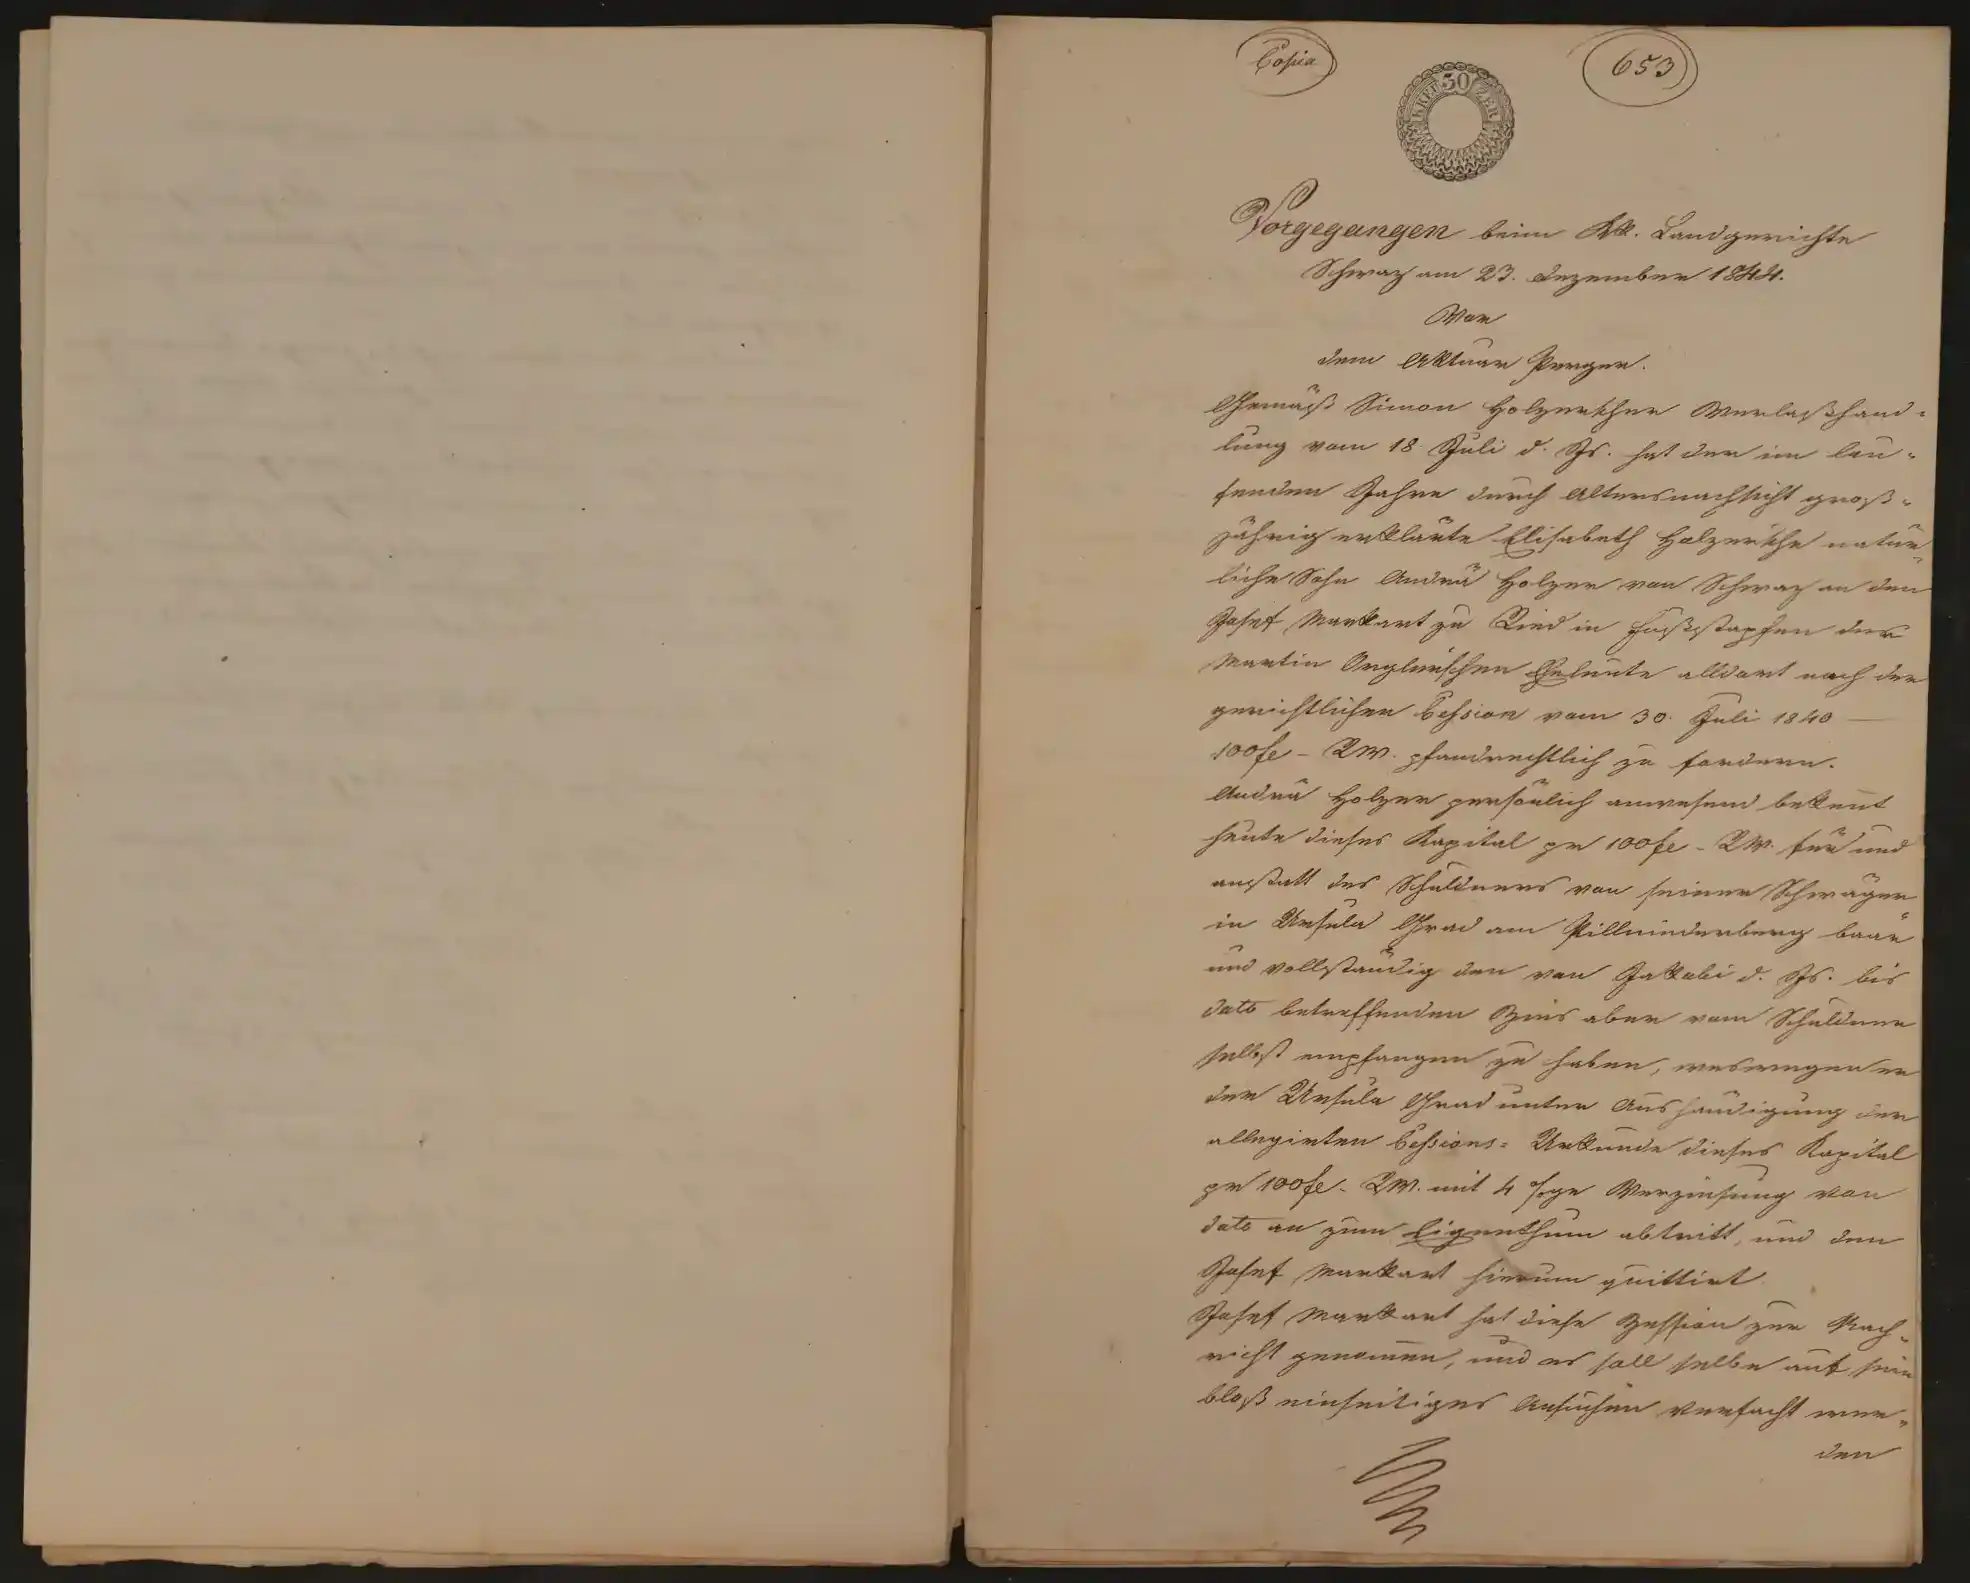 Copia
653
30
KREUZER
Vorgegangen beim kk. Landgerichte
Schwaz am 23. Dezember 1844.
Vor
dem Aktuar Perger.
Gemäß Simon Holzerscher Verlaßhand-
lung vom 18. Juli d. Js. hat der im lau-
fenden Jahre durch Altersnachsicht groß-
jährig erklärte Elisabeth Holzersche natür-
liche Sohn Andrä Holzer von Schwaz an den
Josef Markart zu Ried in Fußstapfen der
Martin Anglerischen Eheleute alldort nach der
gerichtlichen Cession vom 30. Juli 1840
100 f - RW. pfandrechtlich zu fordern.
Andrä Holzer persönlich anwesend bekennt
heute dieses Kapital pr 100 f - RW. für und
anstatt des Schuldners von seiner Schwäger-
in Ursula Grad am Pillniederberg baar
und vollständig den von Jakobi d. Js. bis
dato betreffenden Zins aber vom Schuldner
selbst empfangen zu haben, weswegen er
der Ursula Grad unter Aushändigung der
allegirten Cessions-Urkunde dieses Kapital
pr 100 f - RW. mit 4 %ge Verzinsung von
dato an zum Eigenthum abtritt, und den
Josef Markart hierum quittirt
Josef Markart hat diese Zession zur Nach-
richt genommen, und es soll selbe auf sein
bloß einseitiges Ansuchen verfacht wer-
den